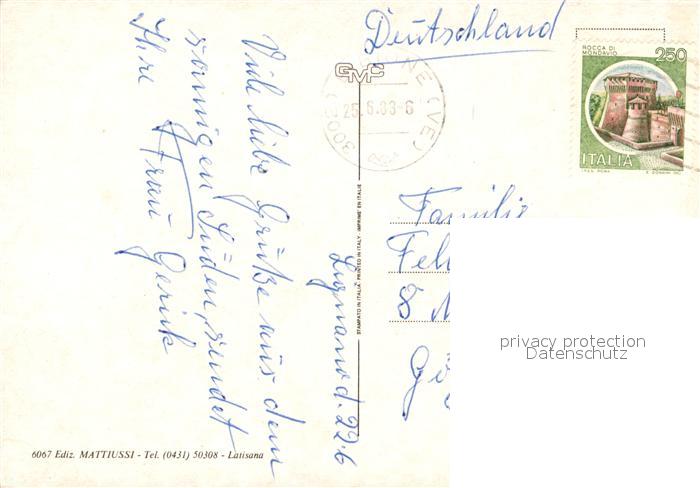 Deutschland
ROCCA DI
MONDAVIO
250
ITALIA
I.P.Z.S. ROMA
E. DONNINI INC.
GMC
(VE)
25.6.83-6
Lignano d. 22.6
Viele liebe Grüße aus dem
sonnigen Süden, sendet
Ihre Frau Gerik
STAMPATO IN ITALIA - PRINTED IN ITALY - IMPRIMÉ EN ITALIE
Familie
Feh
8 M
Gö
privacy protection
Datenschutz
6067 Ediz. MATTIUSSI - Tel. (0431) 50308 - Latisana